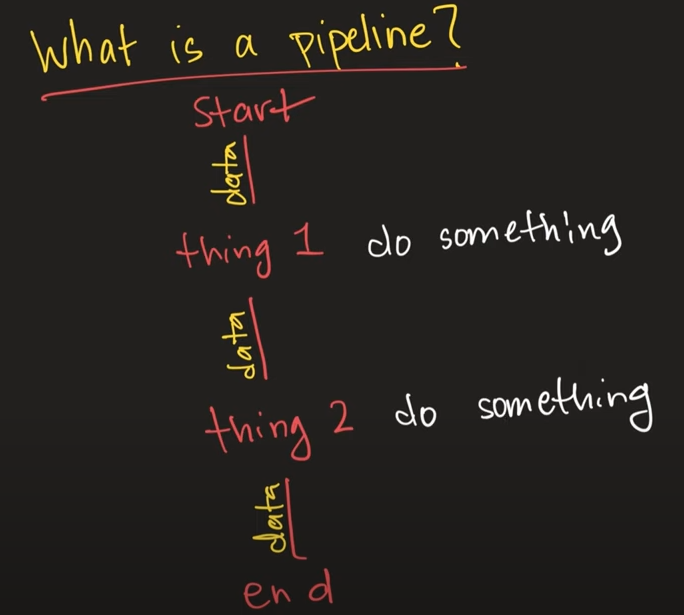 What is a pipeline?
Start
data
thing 1 do something
data
thing 2 do something
data
end